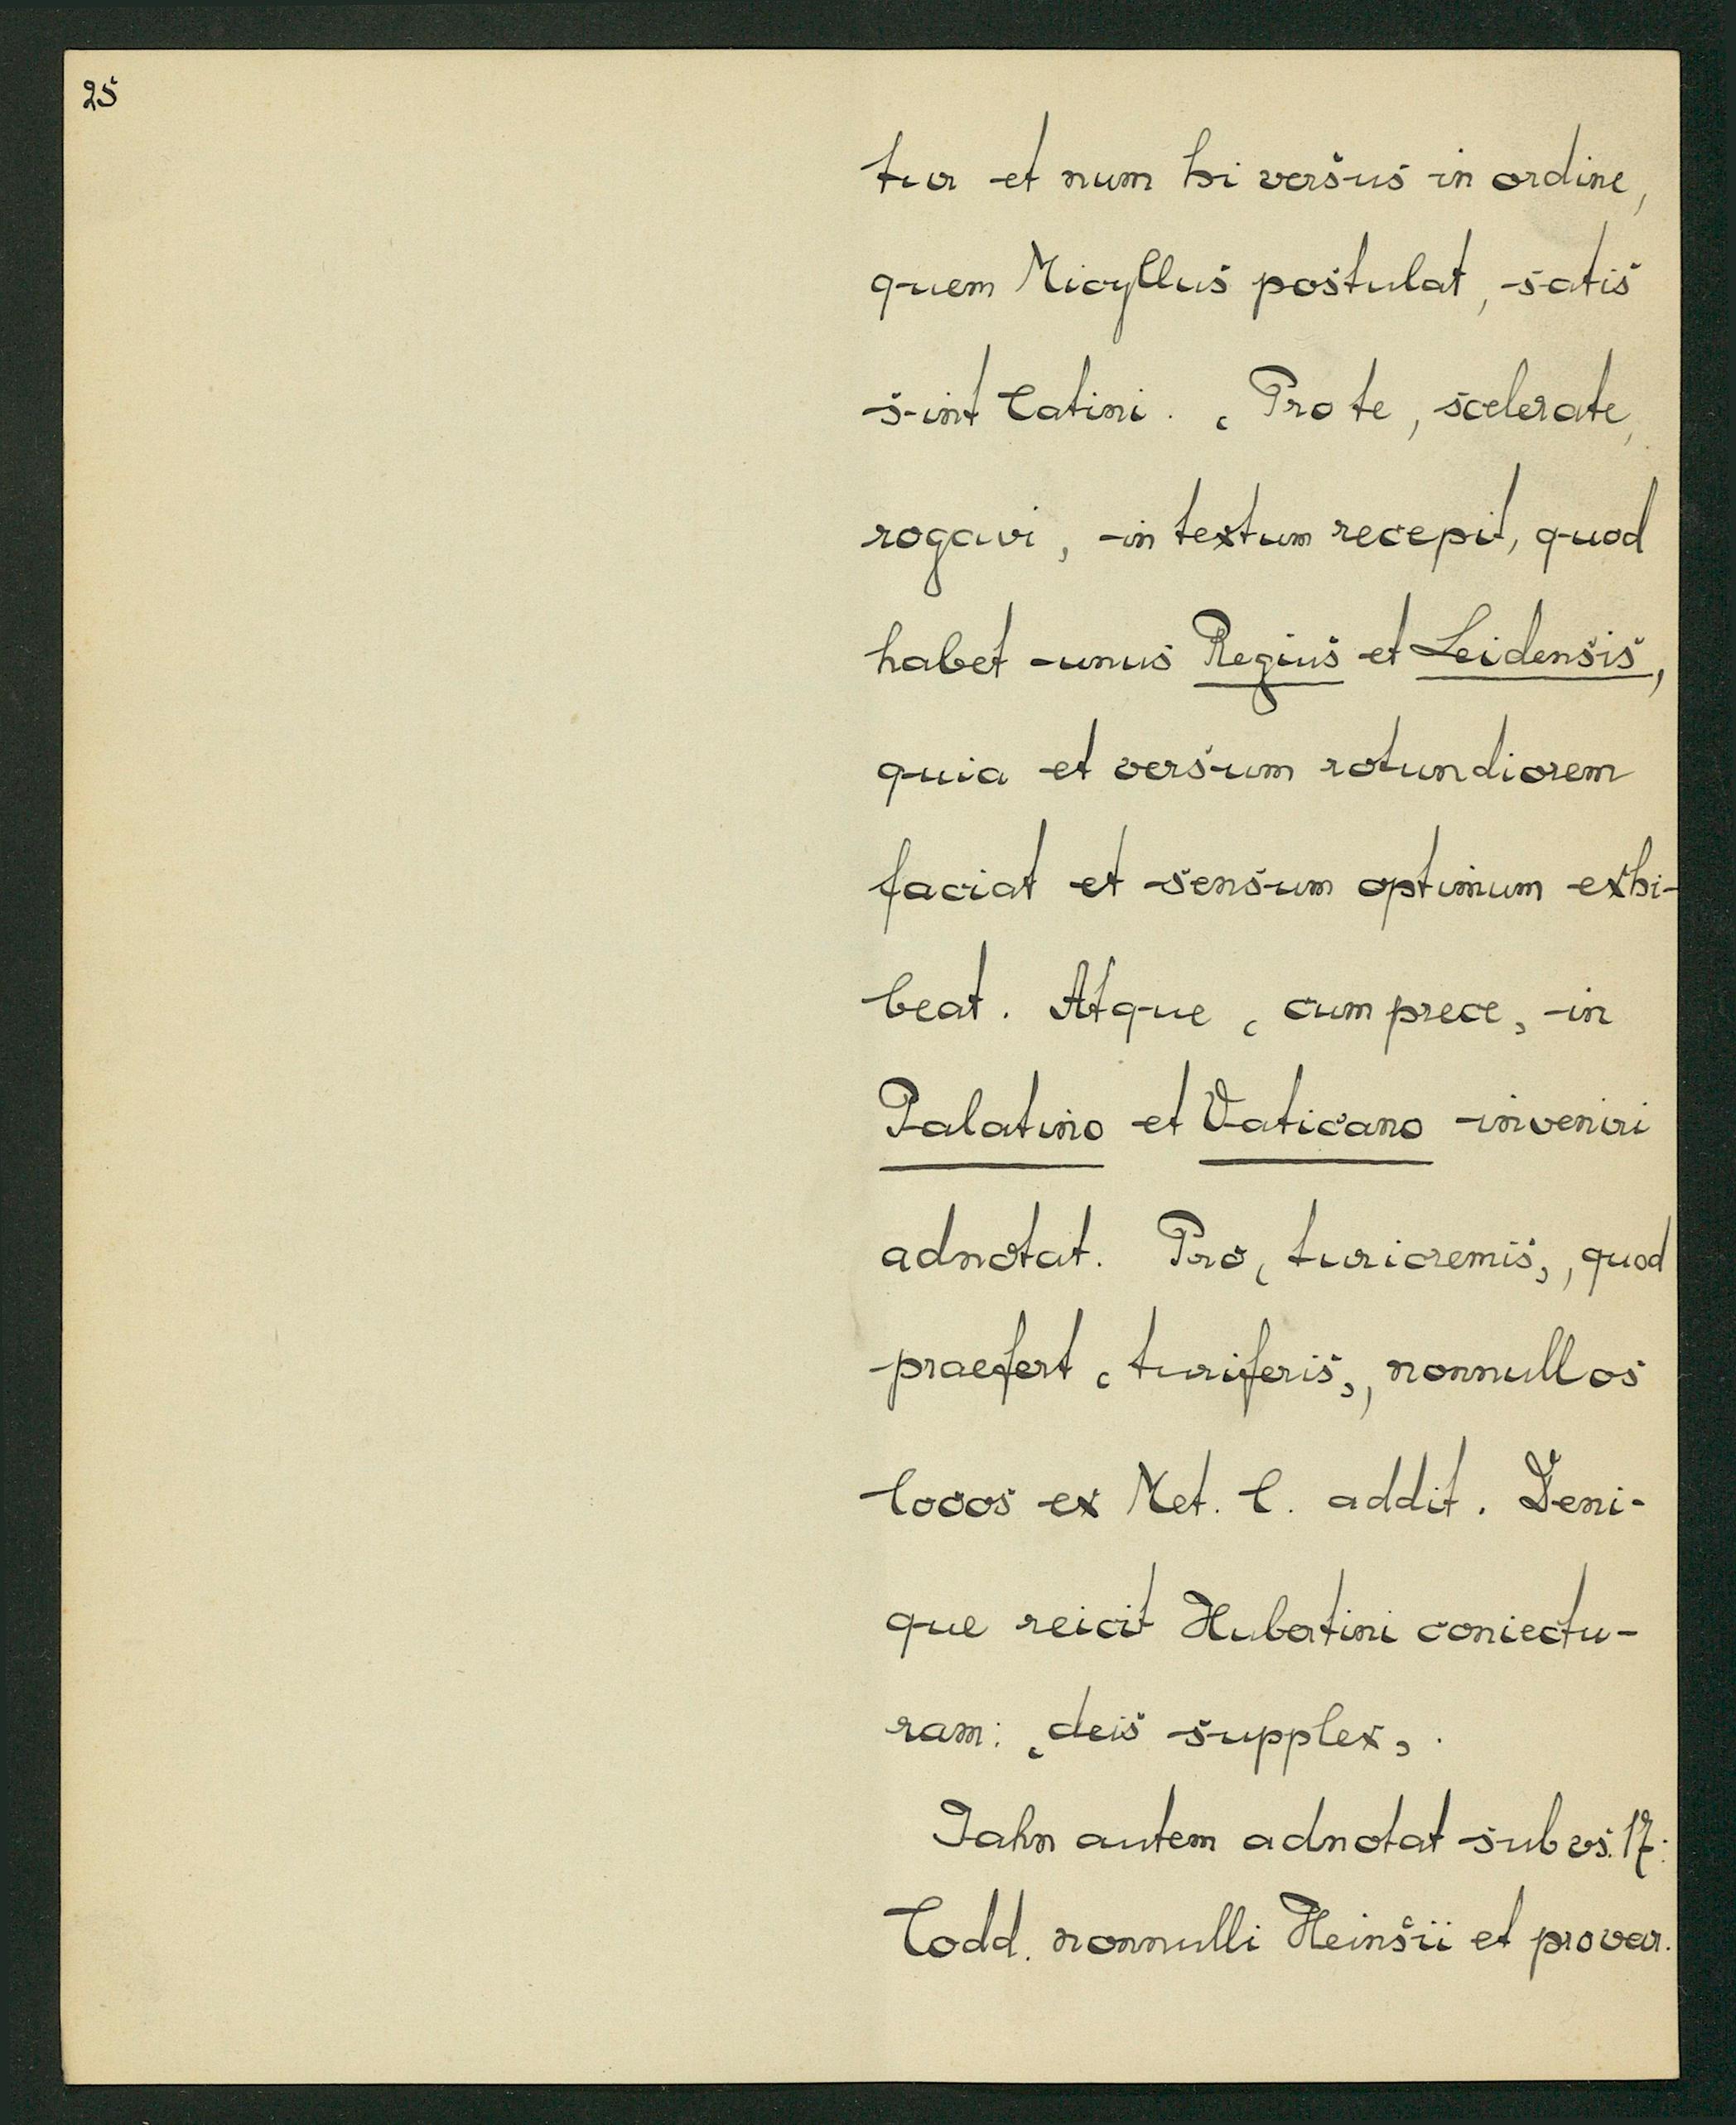 25
tur et num hi versus in ordine,
quem Micyllus postulat, satis
sint Latini. ‚Pro te, scelerate,
rogavi, in textum recepit, quod
habet unus Regius et Leidensis,
quia et versum rotundiorem
faciat et sensum optimum exhi-
beat. Atque ‚cum prece, in
Palatino et Vaticano inveniri
adnotat. Pro ‚turicremis,, quod
praefert ‚turiferis,, nonnullos
locos ex Met. l. addit. Deni-
que reicit Hubertini coniectu-
ram: ‚deis supplex,.
Jahn autem adnotat sub vs. 17:
Codd. nonnulli Heinsii et pro var.